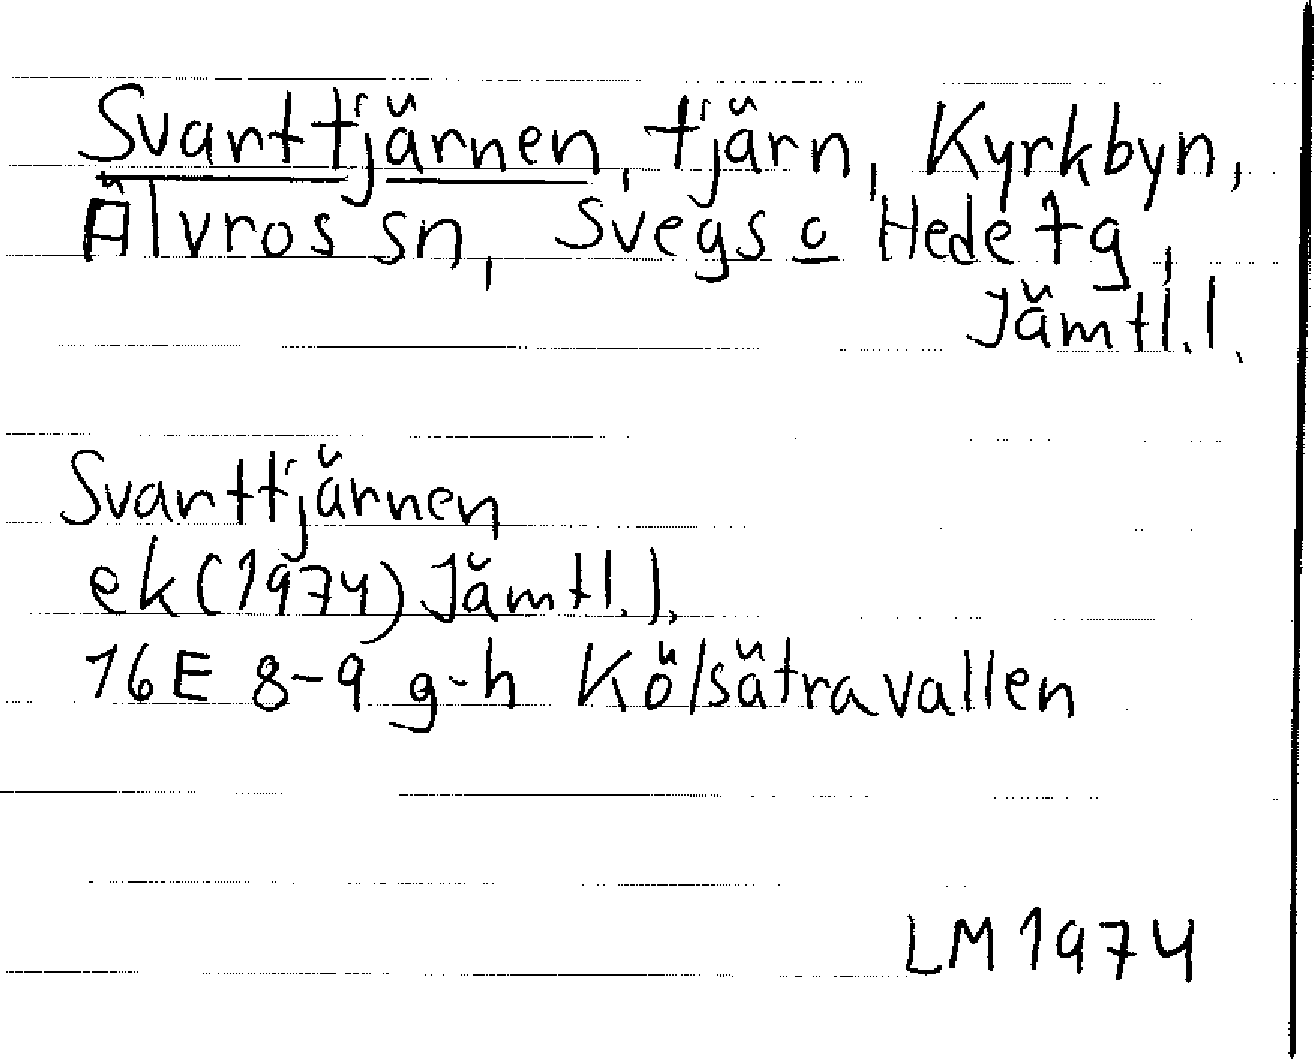 Svarttjärnen, tjärn, Kyrkbyn,
Älvros sn, Svegs o Hede tg,
Jämtl.l.
Svarttjärnen
ek (1974) Jämtl.l.
16E 8-9 g-h Kölsätravallen
LM 1974